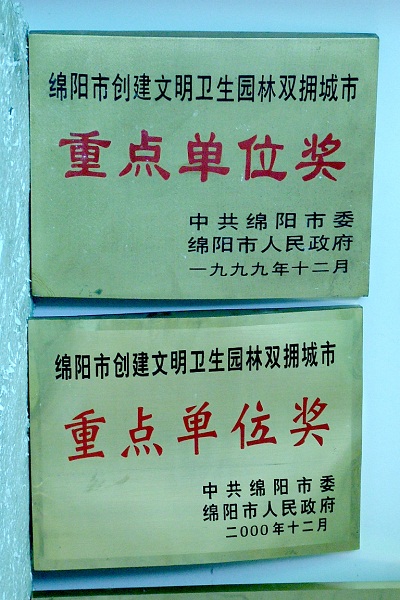 绵阳市创建文明卫生园林双拥城市
重点单位奖
中共绵阳市委
绵阳市人民政府
一九九九年十二月
绵阳市创建文明卫生园林双拥城市
重点单位奖
中共绵阳市委
绵阳市人民政府
二000年十二月